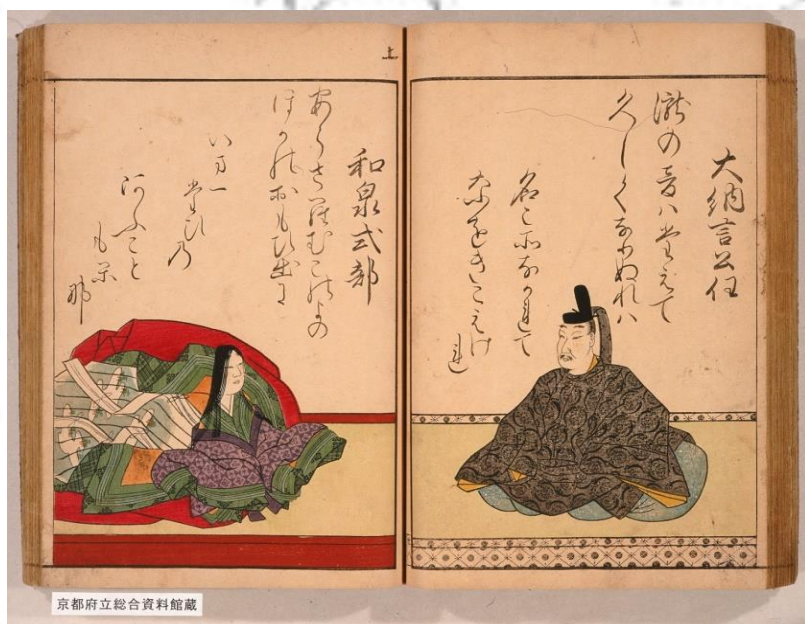 大納言公任
瀧の音ハ堂えて
久しくなりぬれハ
名こ所なかれて
なをきこえけ
れ
上
和泉式部
あらさらむこのよの
ほかのおもひ出に
いま一
堂ひ乃
あふこと
もか
那
京都府立総合資料館蔵